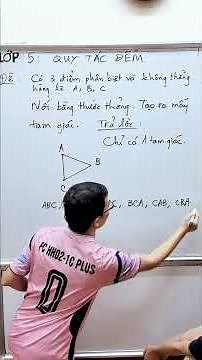 LỚP 5: QUY TẮC ĐẾM
Đề: Có 3 điểm phân biệt và không thẳng
hàng là A, B, C
Nối bằng thước thẳng. Tạo ra mấy
tam giác. Trả lời:
Chỉ có 1 tam giác.
A
B
C
ABC, BCA, CAB, CBA
FC HH02-1C PLUS
0